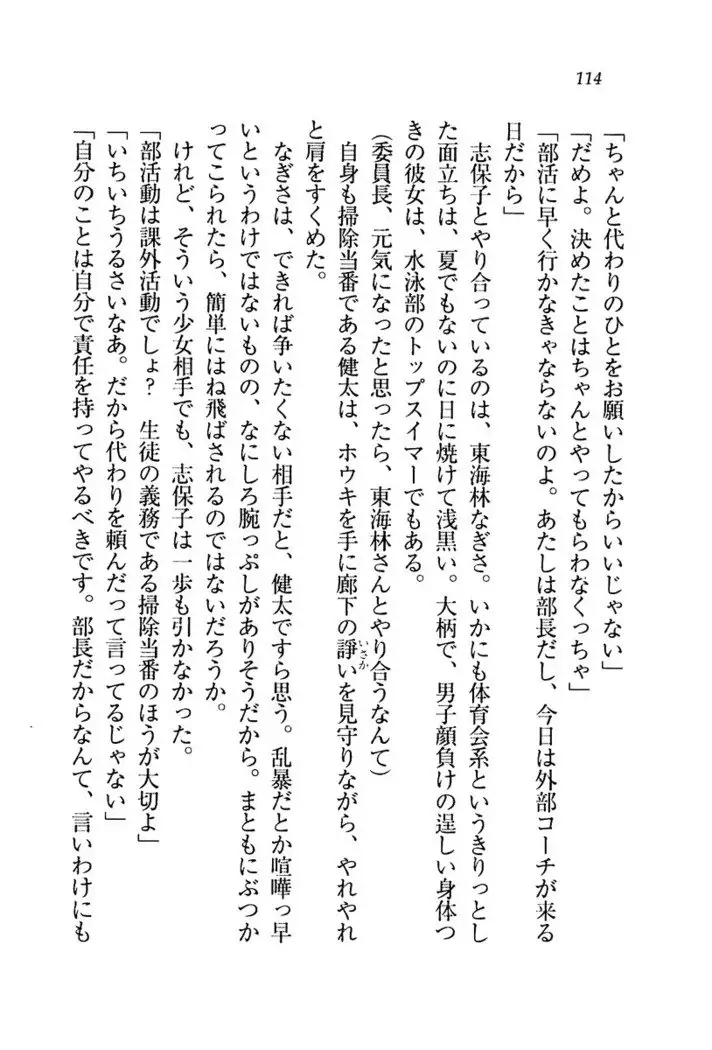 114
「ちゃんと代わりのひとをお願いしたからいいじゃない」
「だめよ。決めたことはちゃんとやってもらわなくっちゃ」
「部活に早く行かなきゃならないのよ。あたしは部長だし、今日は外部コーチが来る
日だから」
志保子とやり合っているのは、東海林なぎさ。いかにも体育会系というきりっとし
た面立ちは、夏でもないのに日に焼けて浅黒い。大柄で、男子顔負けの逞しい身体つ
きの彼女は、水泳部のトップスイマーでもある。
(委員長、元気になったと思ったら、東海林さんとやり合うなんて)
自身も掃除当番である健太は、ホウキを手に廊下の諍いさかいを見守りながら、やれやれ
と肩をすくめた。
なぎさは、できれば争いたくない相手だと、健太ですら思う。乱暴だとか喧嘩っ早
いというわけではないものの、なにしろ腕っぷしがありそうだから。まともにぶつか
ってこられたら、簡単にはね飛ばされるのではないだろうか。
けれど、そういう少女相手でも、志保子は一歩も引かなかった。
「部活動は課外活動でしょ？　生徒の義務である掃除当番のほうが大切よ」
「いちいちうるさいなあ。だから代わりを頼んだって言ってるじゃない」
「自分のことは自分で責任を持ってやるべきです。部長だからなんて、言いわけにも